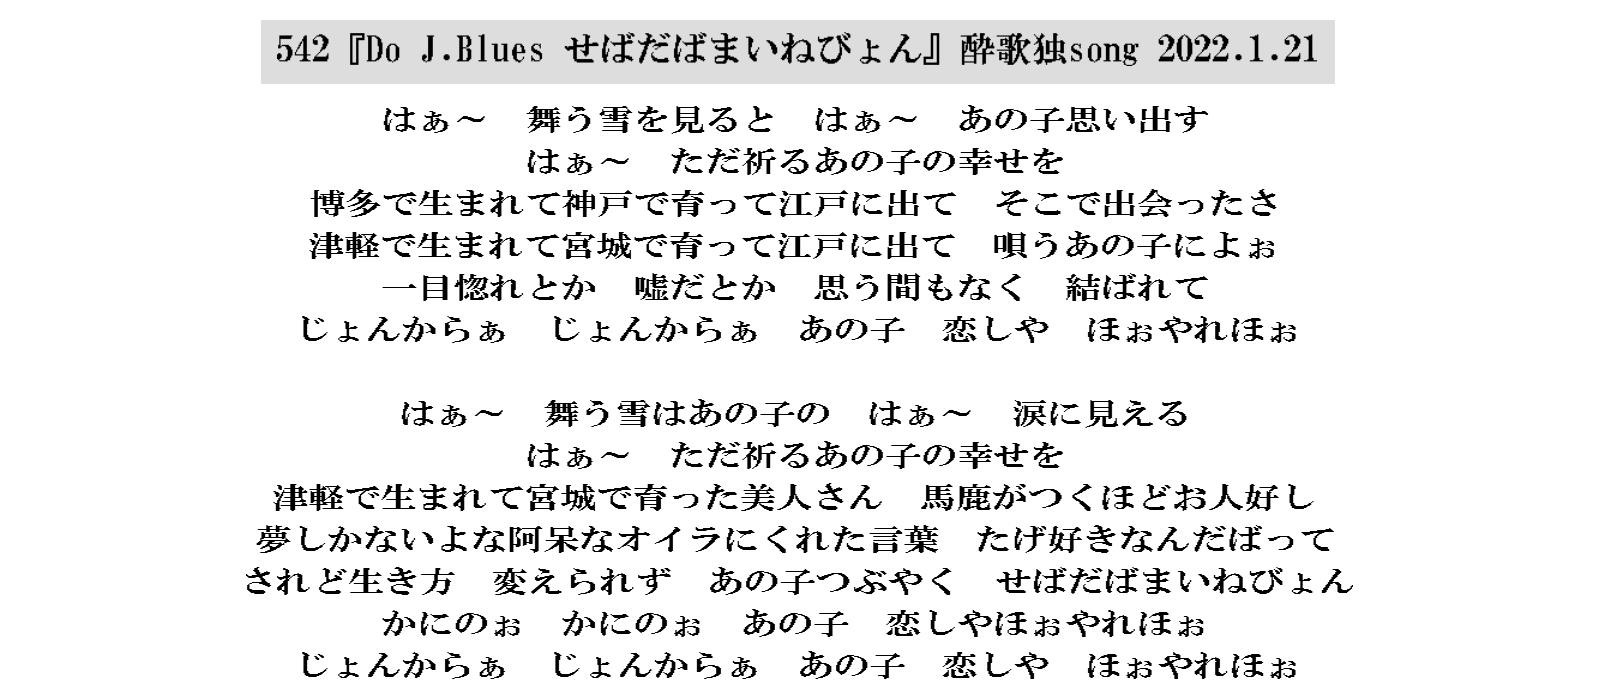 542『Do J.Blues せばだばまいねびょん』酔歌独song 2022.1.21
はぁ～　舞う雪を見ると　はぁ～　あの子思い出す
はぁ～　ただ祈るあの子の幸せを
博多で生まれて神戸で育って江戸に出て　そこで出会ったさ
津軽で生まれて宮城で育って江戸に出て　唄うあの子によぉ
一目惚れとか　嘘だとか　思う間もなく　結ばれて
じょんからぁ　じょんからぁ　あの子　恋しや　ほぉやれほぉ
はぁ～　舞う雪はあの子の　はぁ～　涙に見える
はぁ～　ただ祈るあの子の幸せを
津軽で生まれて宮城で育った美人さん　馬鹿がつくほどお人好し
夢しかないよな阿呆なオイラにくれた言葉　たげ好きなんだばって
されど生き方　変えられず　あの子つぶやく　せばだばまいねびょん
かにのぉ　かにのぉ　あの子　恋しやほぉやれほぉ
じょんからぁ　じょんからぁ　あの子　恋しや　ほぉやれほぉ